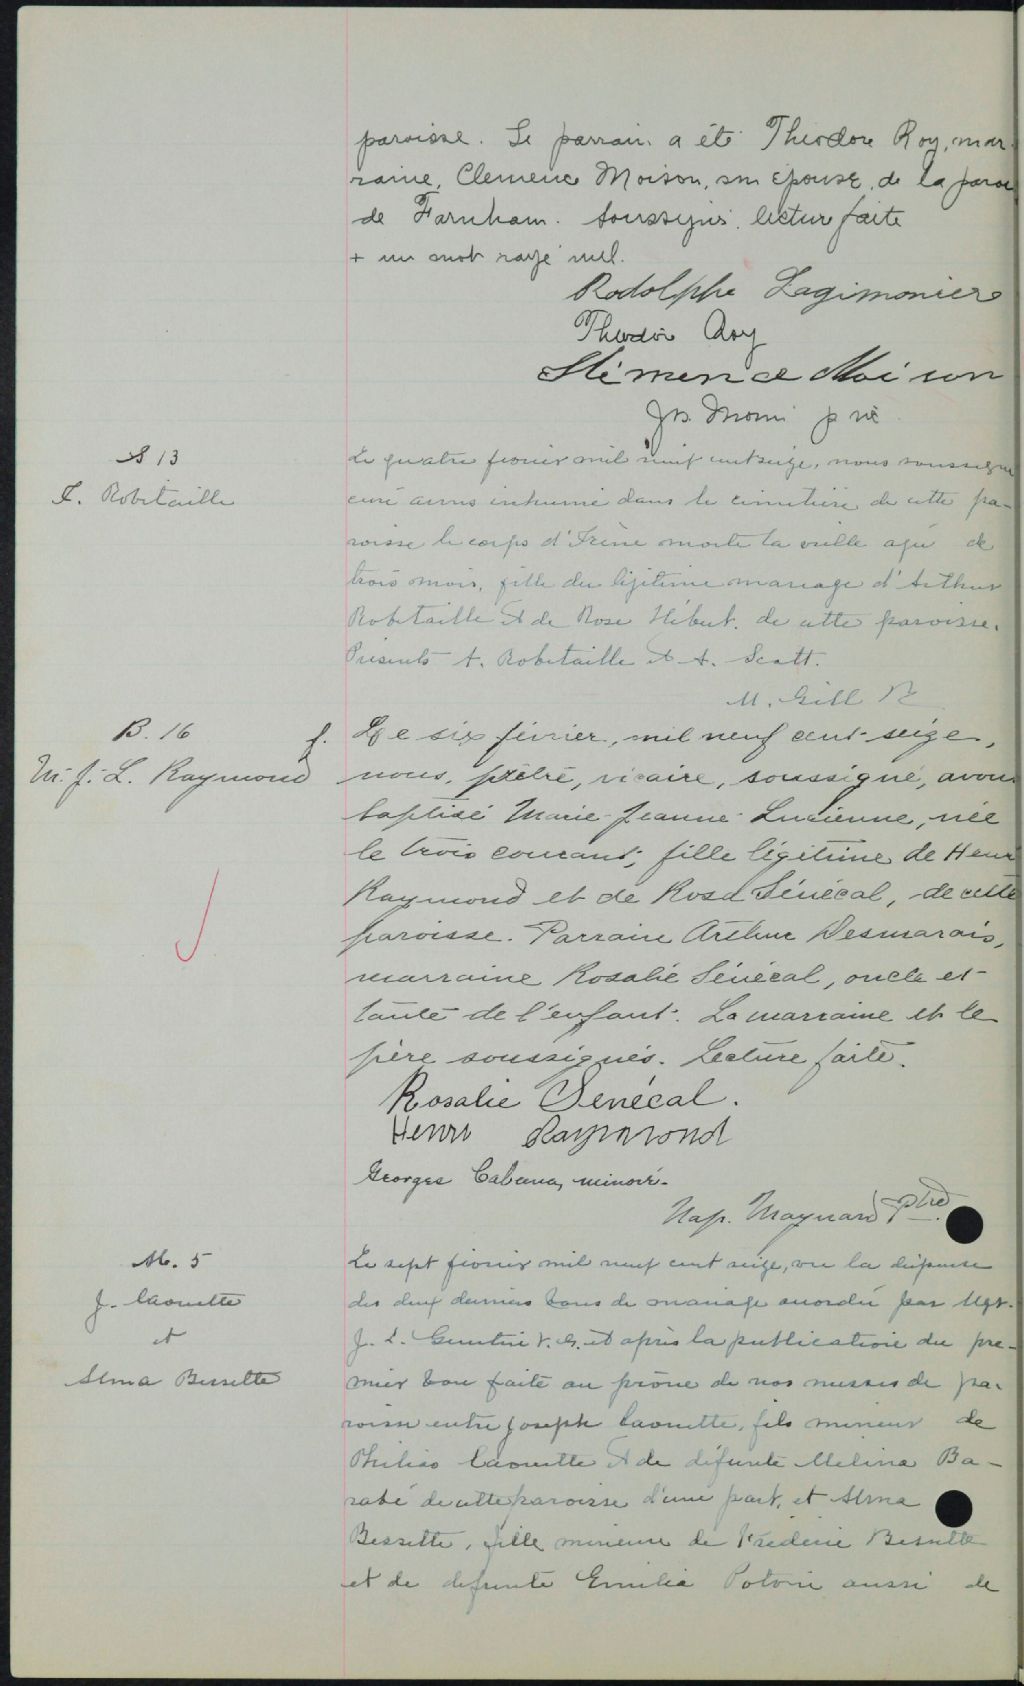 paroisse. Le parrain a été Theodore Roy, mar-
raine, Clemence Moison, son épouse, de la paroi
de Farnham. Soussignés. lecture faite
+ un mot rayé nul.
Rodolphe Lagimonier
Theodore Roy
Clémence Moison
Js. Morin ptre
S 13
I. Robitaille
Le quatre fevrier mil neuf cent seize, nous soussigné
curé avons inhumé dans le cimetière de cette pa-
roisse le corps d'Irène morte la veille agée de
trois mois, fille du légitime mariage d'Arthur
Robitaille et de Rose Hébert de cette paroisse.
Présents A. Robitaille et A. Scott.
M. Gill
B. 16
M.-J.-L. Raymond
f. Le six février, mil neuf cent-seize,
nous, prêtre, vicaire, soussigné, avons
baptisé Marie-Jeanne-Lucienne, née
le trois courant, fille légitime de Henri
Raymond et de Rosa Sénécal, de cette
paroisse. Parrain Arthur Desmarais,
marraine Rosalie Sénécal, oncle et
tante de l'enfant. La marraine et le
père soussignés. Lecture faite.
Rosalie Senécal.
Henri Raymond
Georges Cabana, minoré.
Nap. Maynard ptre
M. 5
J. Caouette
et
Alma Bessette
Le sept fevrier mil neuf cent seize, vu la dispense
des deux derniers bans de mariage accordée par Mgr.
J. L. Guertin V. G. et après la publication du pre-
mier ban faite au prône de nos messes de pa-
roisse entre Joseph Caouette, fils mineur de
Philias Caouette et de défunte Melina Ba-
rabé de cette paroisse d'une part, et Alma
Bessette, fille mineure de Fréderic Bessette
et de defunte Emilia Potvin aussi de